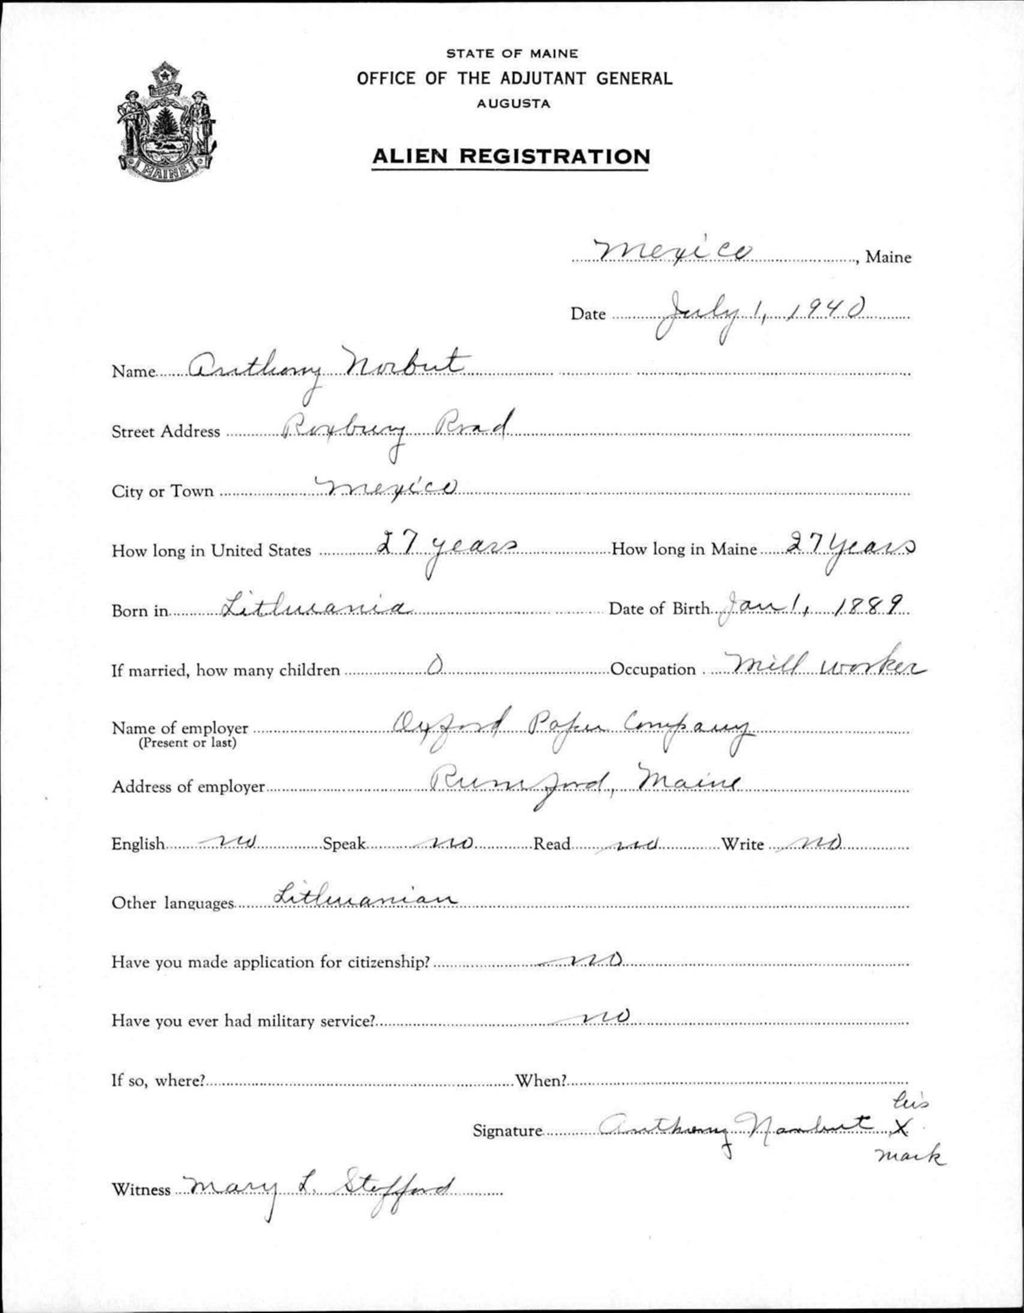 STATE OF MAINE
OFFICE OF THE ADJUTANT GENERAL
AUGUSTA
ALIEN REGISTRATION
MAINE
Mexico, Maine
Date July 1, 1940
Name Anthony Norbut
Street Address Roxbury Road
City or Town Mexico
How long in United States 27 years How long in Maine 27 years
Born in Lithuania Date of Birth Jan 1, 1889
If married, how many children 0 Occupation Mill worker
Name of employer Oxford Paper Company
(Present or last)
Address of employer Rumford, Maine
English no Speak no Read no Write no
Other languages Lithuanian
Have you made application for citizenship? no
Have you ever had military service? no
If so, where? When?
his
Signature Anthony Norbut X
mark
Witness Mary L. Stafford